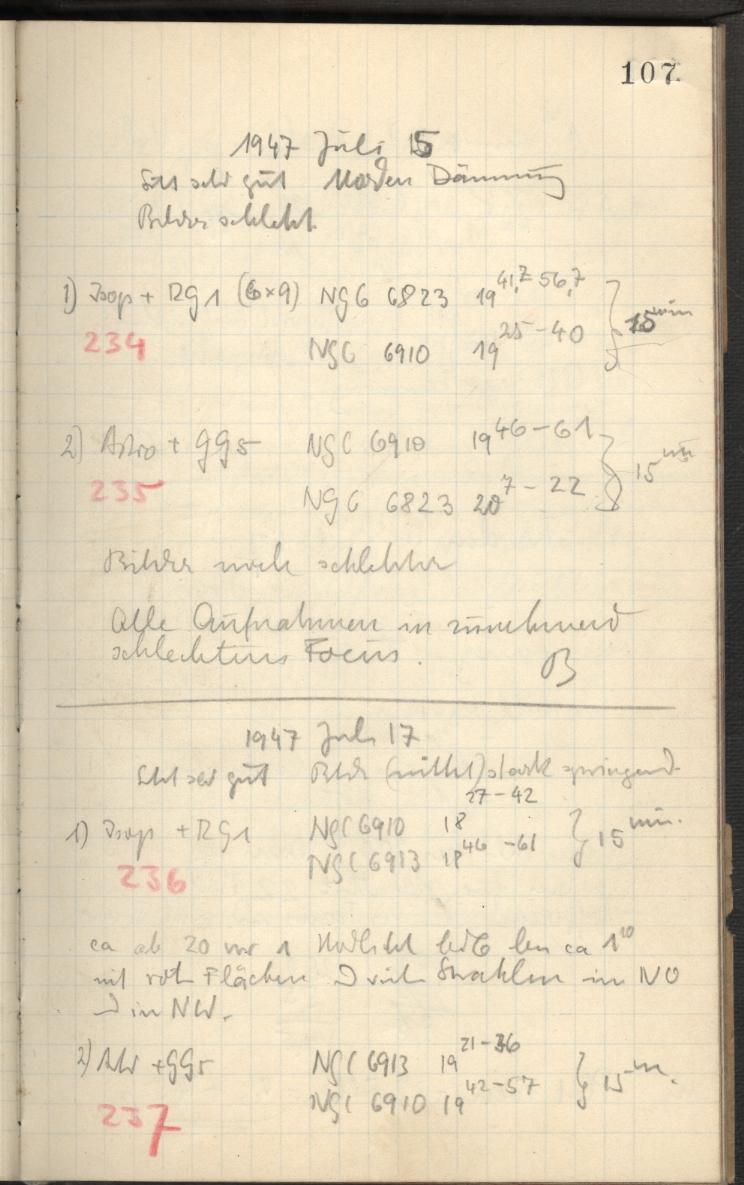 107
1947 Juli 15
sehr gut Norden Dämmung
Bilder schlecht.
1) Isop + RG1 (6×9) NGC 6823 19 41,7-56,7
234 NGC 6910 19 25-40 } 15 min
2) Astro + GG5 NGC 6910 19 46-61
235 NGC 6823 20 7-22 } 15 min
Bilder noch schlechter
Alle Aufnahmen in zunehmend
schlechtems Focus. B
1947 Juli 17
gut Bilder (mittel) stark springend.
1) Isop + RG1 NGC 6910 18 27-42
236 NGC 6913 18 46-61 } 15 min.
ca ab 20 Nordlicht ca 1 10
mit rot Flächen Strahlen in NO
in NW.
2) + GG5 NGC 6913 19 21-36
237 NGC 6910 19 42-57 } 15 m.